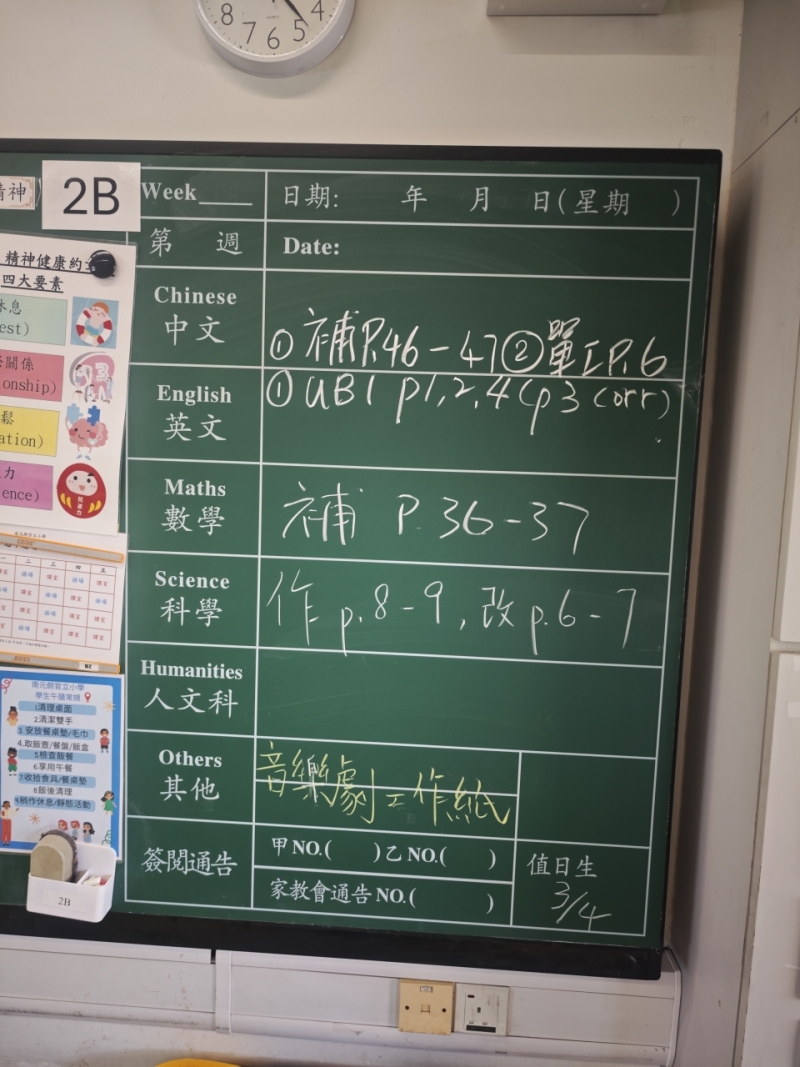 8 7 6 5 4
精神
2B
Week____
日期: 年 月 日(星期 )
第 週
Date:
精神健康約章
四大要素
休息
est)
關係
onship)
鬆
ation)
力
ience)
Chinese
中文
① 補P.46-47 ② 單工P.6
English
英文
① UB1 p1,2,4 (p3 corr)
Maths
數學
補 P.36-37
Science
科學
作 p.8-9, 改 p.6-7
Humanities
人文科
Others
其他
音樂劇工作紙
簽閱通告
甲NO.( )乙NO.( )
家教會通告NO.( )
值日生
3/4
南元朗官立小學
學生午膳常規
1清理桌面
2清潔雙手
3.安放餐桌墊/毛巾
4.取飯壺/餐盤/飯盒
5檢查飯餐
6.享用午餐
7收拾食具/餐桌墊
8飯後清理
9.稍作休息/靜態活動
2B